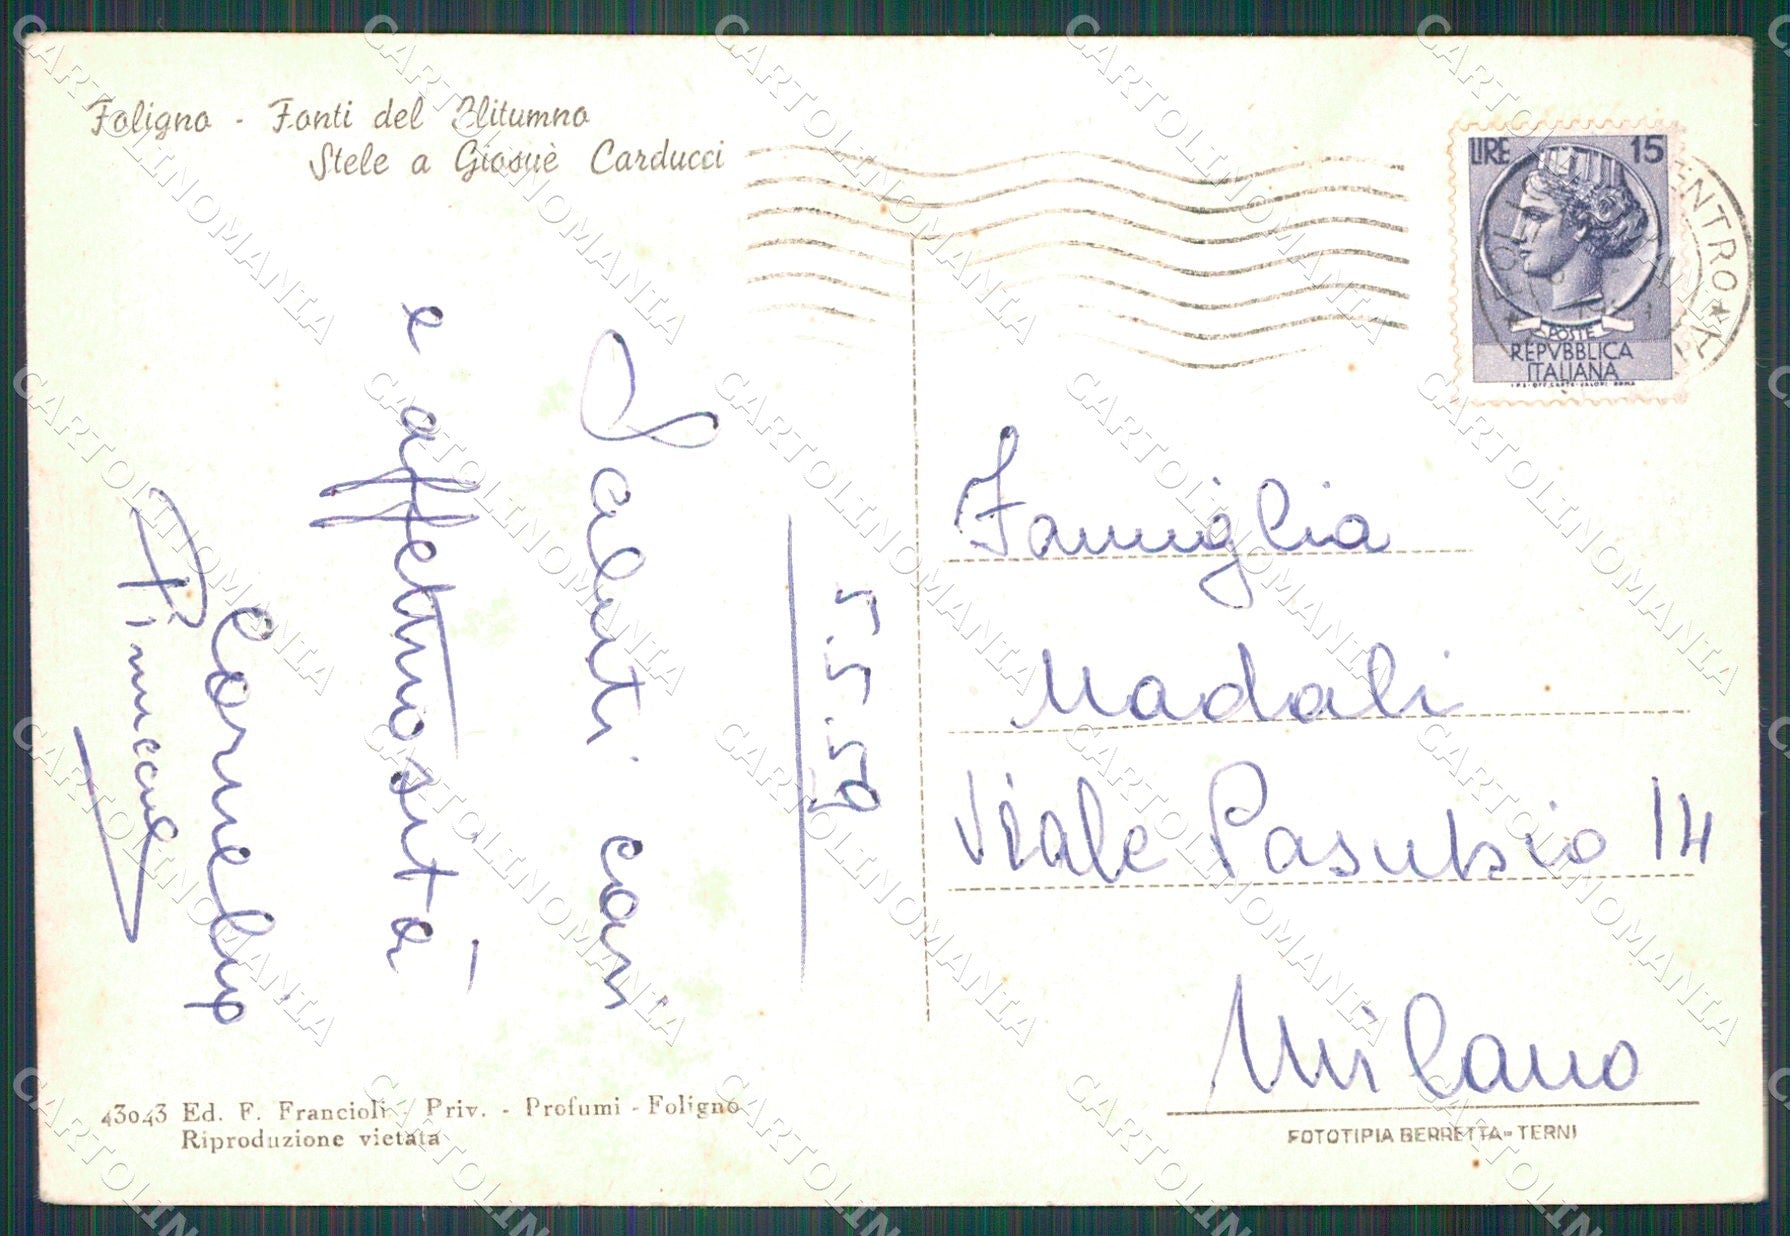 Foligno - Fonti del Clitumno
Stele a Giosuè Carducci
LIRE 15
POSTE
REPVBBLICA
ITALIANA
I.P.S.-OFF.CARTE-VALORI-ROMA
FOLI
ENTRO
5.5.59
Saluti cari
e affettuosità
Famiglia
Nadali
Viale Pasubio 14
Milano
43043 Ed. F. Francioli - Priv. - Profumi - Foligno
Riproduzione vietata
FOTOTIPIA BERRETTA - TERNI
CARTOLINOMANIA